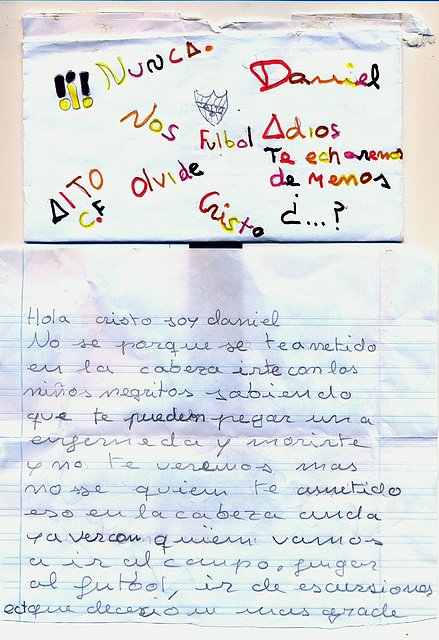 ¡¡¡ NUNCA.
Daniel
Nos
Futbol
Adios
Te echaremos
de menos
¿...?
AITO
C.F
olvide
Cristo
Hola cristo soy daniel
No se porque se te a metido
en la cabeza irte con los
niños negritos sabiendo
que te pueden pegar una
enfermeda y morirte
y no te veremos mas
no se quien te a metido
eso en la cabeza anda
ya ver con quien vamos
a ir al campo, jugar
al futbol, ir de escursiones